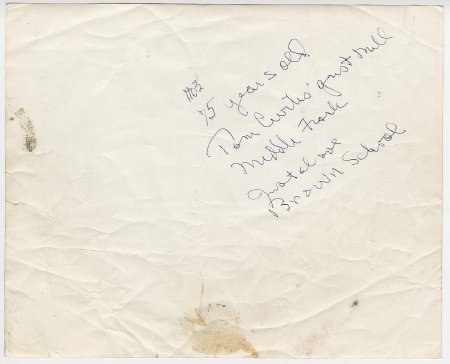 75 years old
Tom Curtis' grist mill
Middle Fork
Just above
Brown School